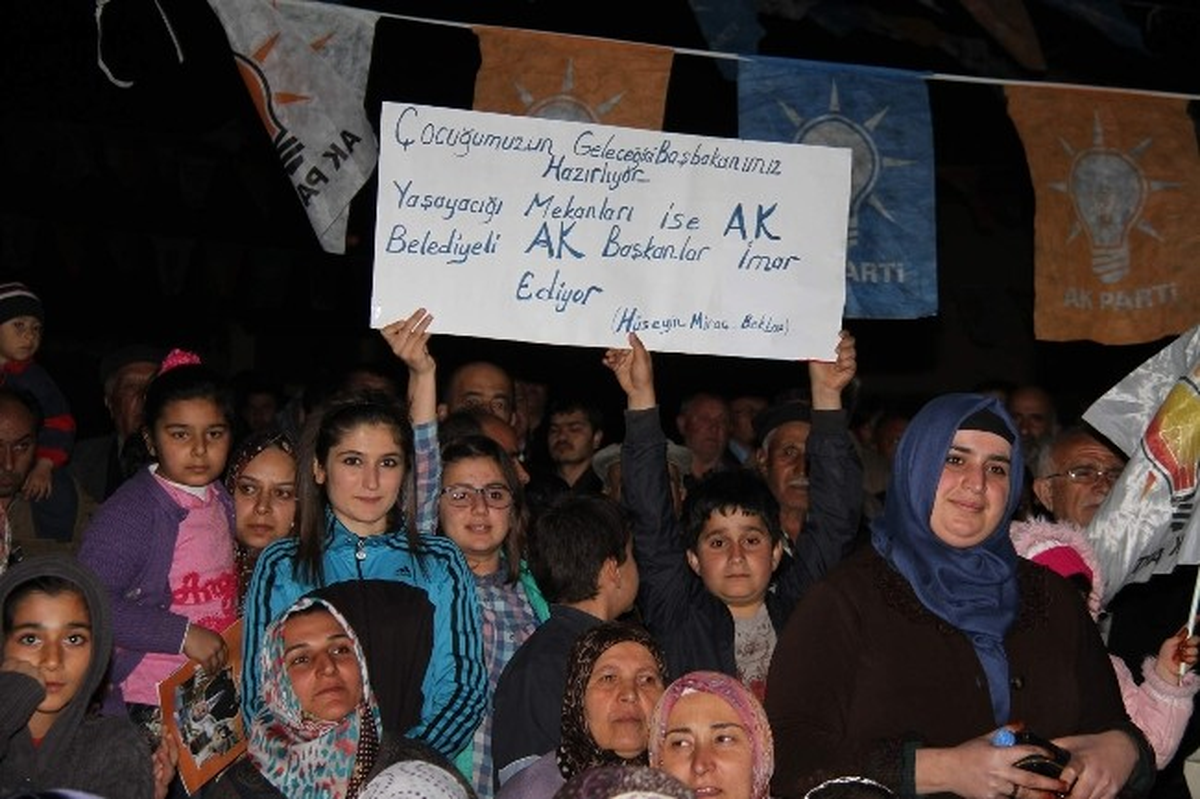 Çocuğumuzun Geleceğini Başbakanımız
Hazırlıyor
Yaşayacığı Mekanları ise AK
Belediyeli AK Başkanlar İmar
Ediyor
(Hüseyin Miraç
AK PA
PARTİ
AK PARTİ